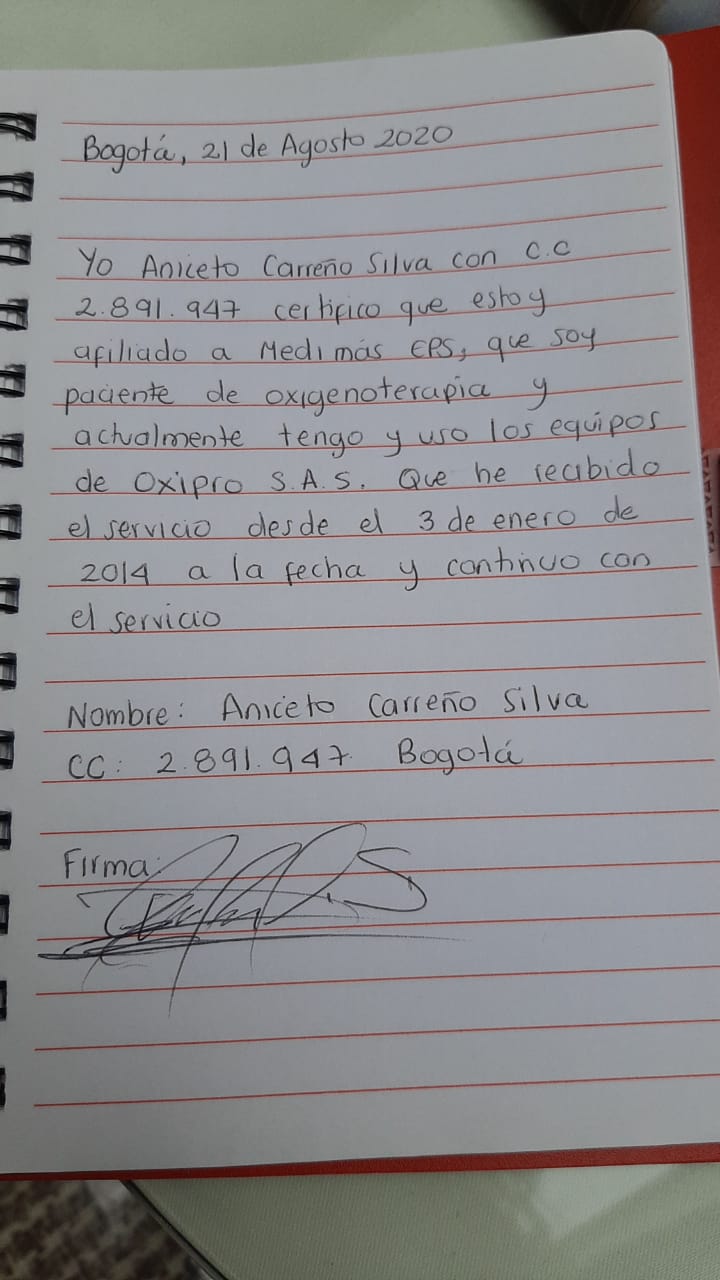 Bogotá, 21 de Agosto 2020
Yo Aniceto Carreño Silva con C.C
2.891.947 certifico que estoy
afiliado a Medimás EPS, que soy
paciente de oxigenoterapia y
actualmente tengo y uso los equipos
de Oxipro S.A.S. Que he recibido
el servicio desde el 3 de enero de
2014 a la fecha y continuo con
el servicio
Nombre: Aniceto Carreño Silva
CC: 2.891.947 Bogotá
Firma: